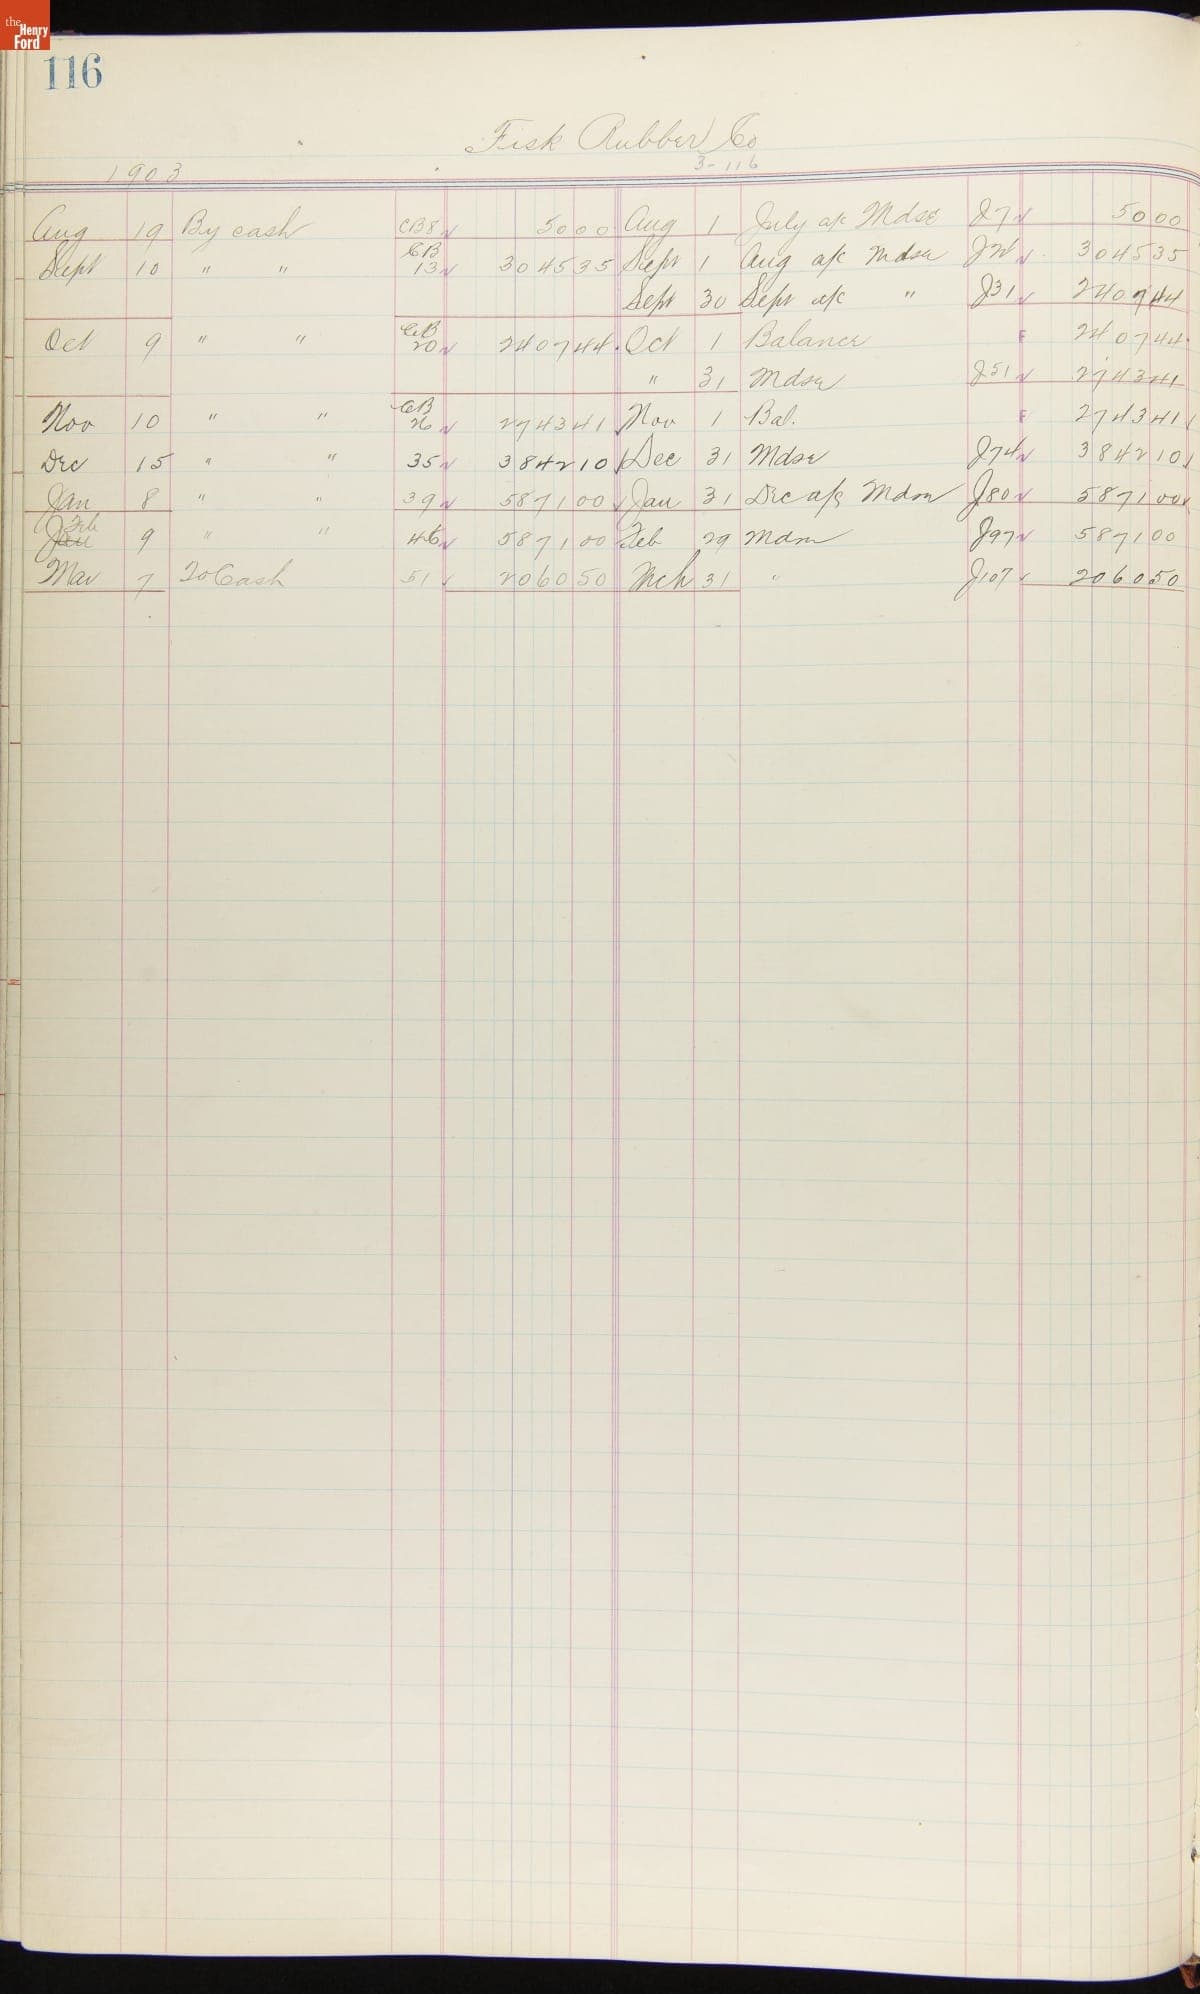 the Henry Ford
116
Fisk Rubber Co
3-116
1903
Aug 19 By cash CB8 50 00 Aug 1 July a/c Mdse J7 50 00
Sept 10 " " CB 13 3045 35 Sept 1 Aug a/c Mdse 3045 35
Sept 30 Sept a/c " J31 2407 44
Oct 9 " " CB 20 2407 44 Oct 1 Balance F 2407 44
" 31 Mdse J51 2743 41
Nov 10 " " CB 26 2743 41 Nov 1 Bal. F 2743 41
Dec 15 " " 35 3842 10 Dec 31 Mdse J74 3842 10
Jan 8 " " 39 5871 00 Jan 31 Dec a/c Mdse J80 5871 00
Feb
Jan 9 " " 46 5871 00 Feb 29 Mdse J97 5871 00
Mar 7 To Cash 51 2060 50 Mch 31 " J107 2060 50